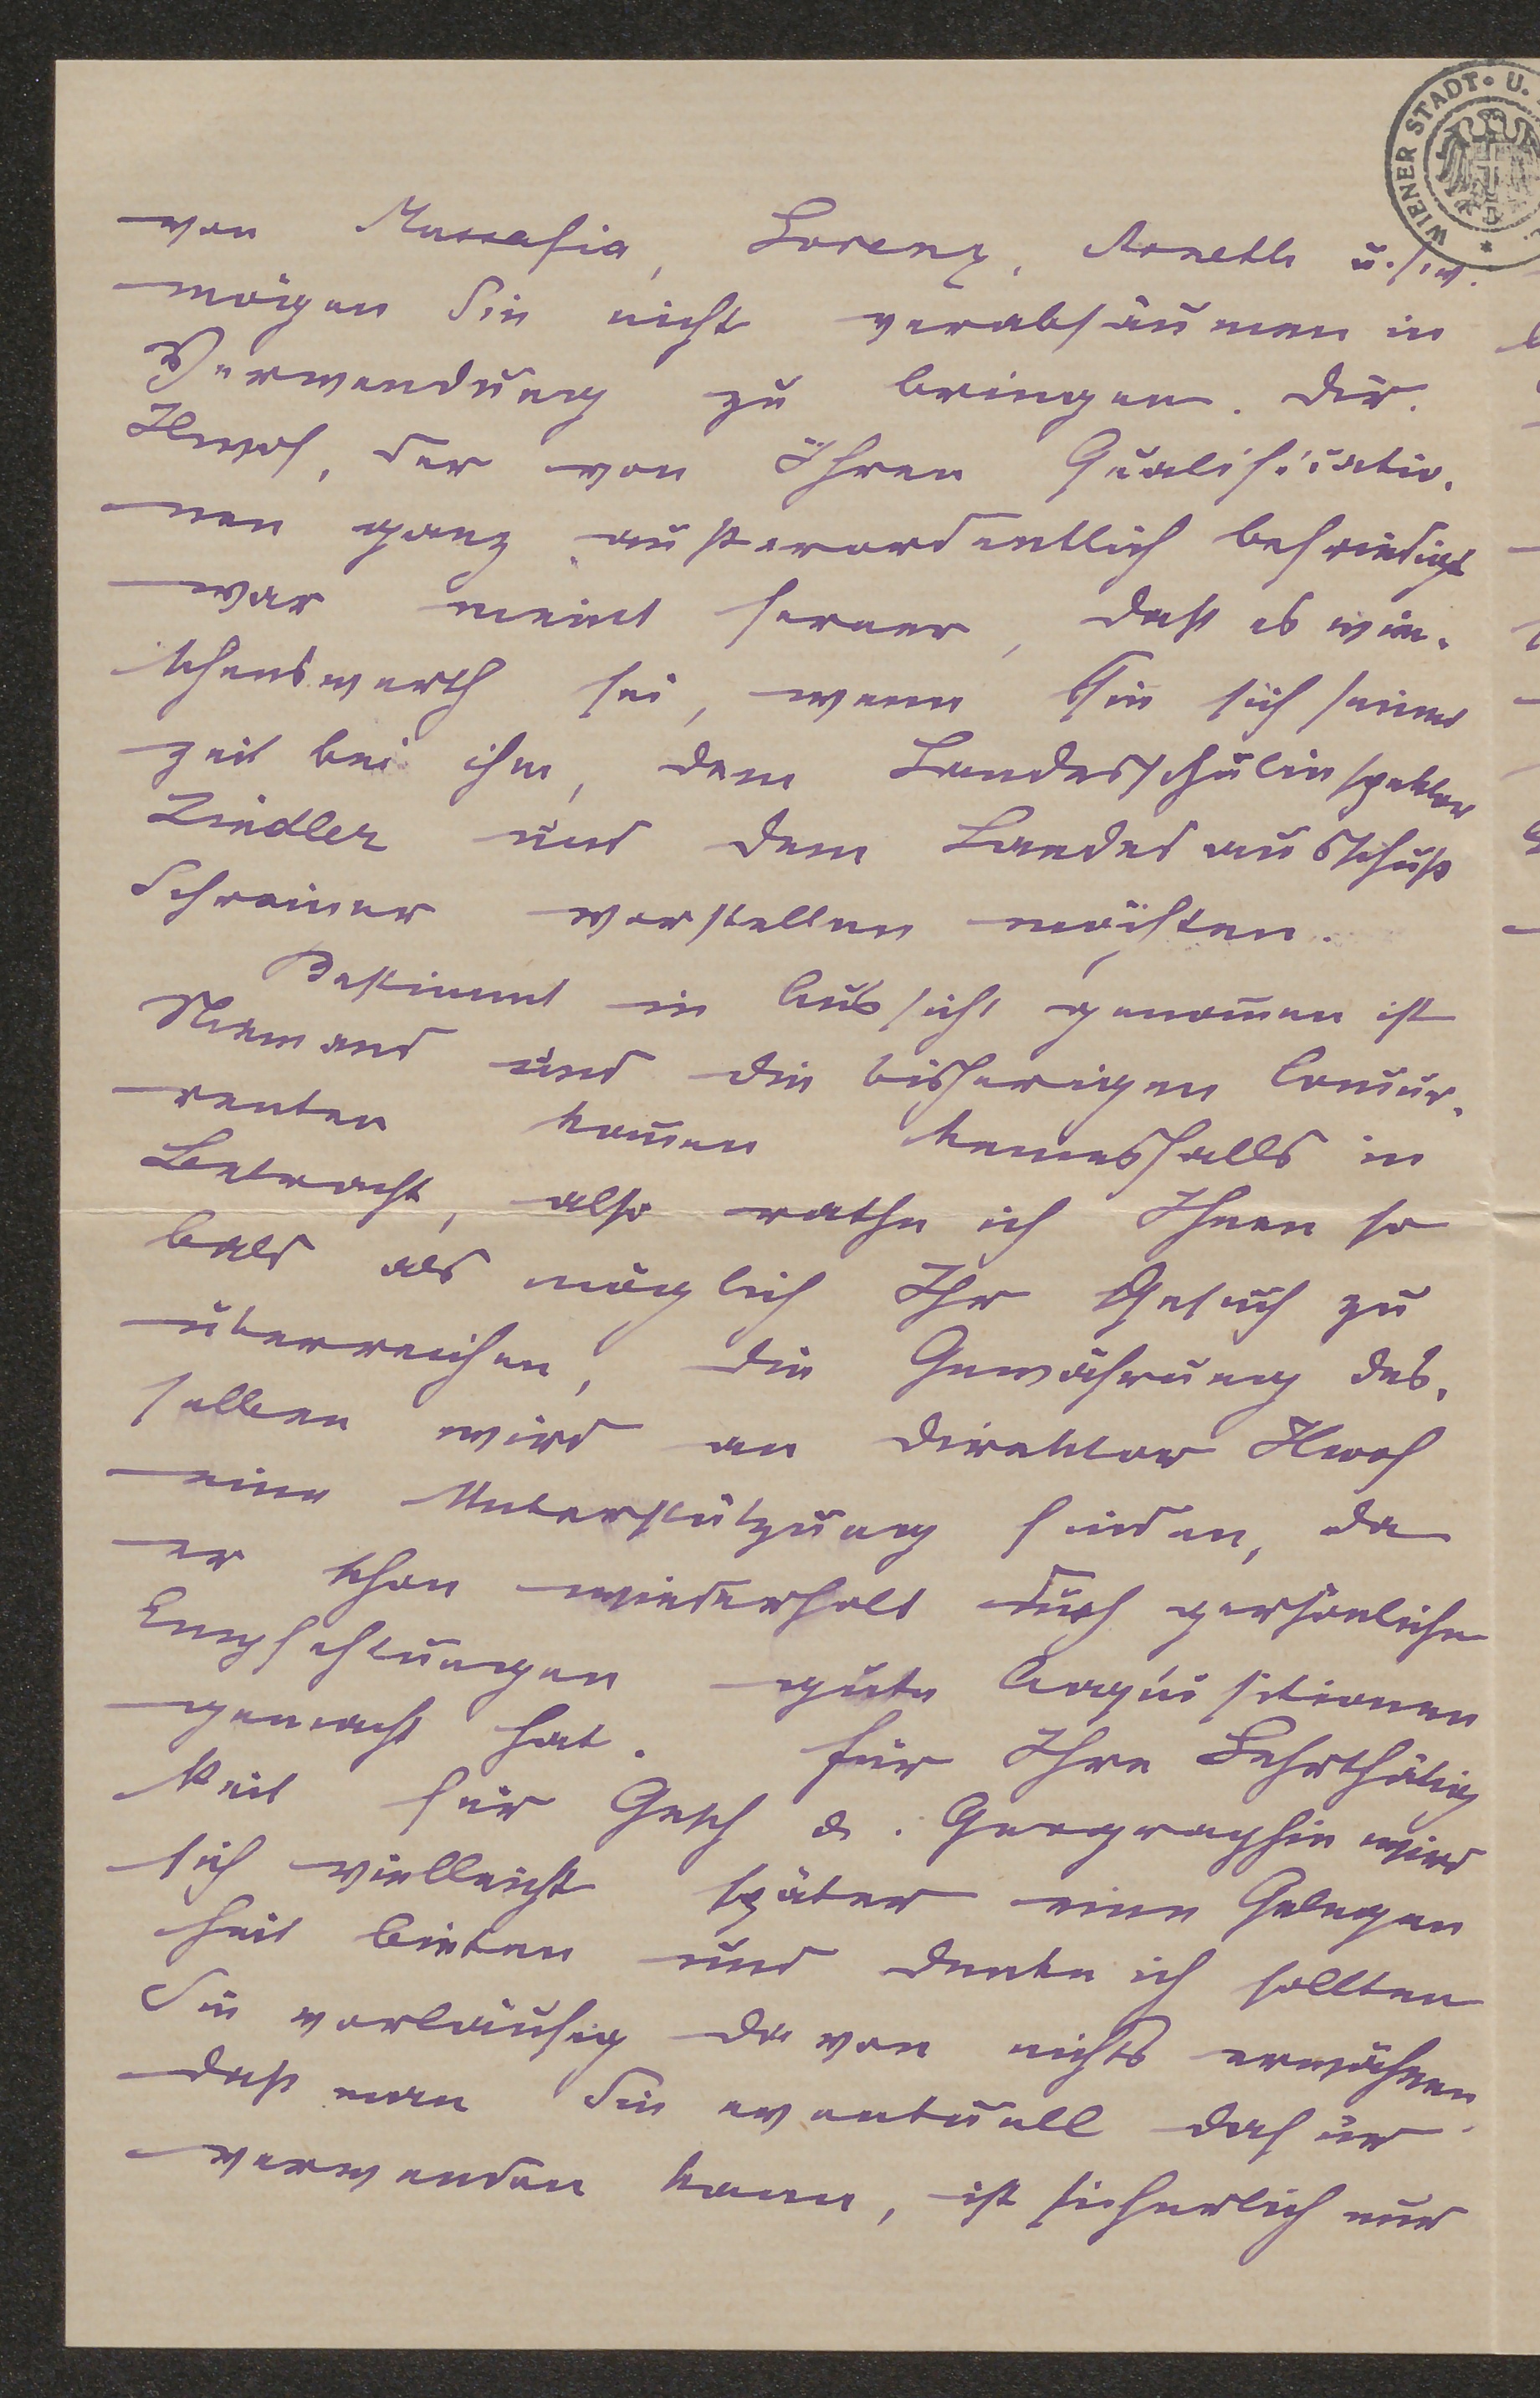 WIENER STADT- U.
von Mussafia, Lorenz, Arneth u.s.w.
mögen Sie nicht verabsäumen in
Verwendung zu bringen. Dir.
Ilwof, der von Ihren Qualificatio-
nen ganz außerordentlich befriedigt
war meint ferner, daß es wün-
schenswerth sei, wenn Sie sich seiner
zeit bei ihm, dem Landesschulinspektor
Zindler und dem Landesausschuß
Schreiner vorstellen möchten.
Bestimmt in Aussicht genom̄en ist
Niemand und die bisherigen Concur-
renten kom̄en keinesfalls in
Betracht, also rathe ich Ihnen so
bald als möglich Ihr Gesuch zu
überreichen, die Gewährung des-
selben wird an Direktor Ilwof
eine Unterstützung finden, da
er schon wiederholt durch persönliche
Empfehlungen gute Acquisitionen
gemacht hat. Für Ihre Lehrthätig
keit für Gesch & Geographie wird
sich vielleicht später eine Gelegen
heit bieten und denke ich sollten
Sie vorläufig davon nichts erwähnen.
daß man Sie eventuell dafür
verwenden kann, ist sicherlich nur